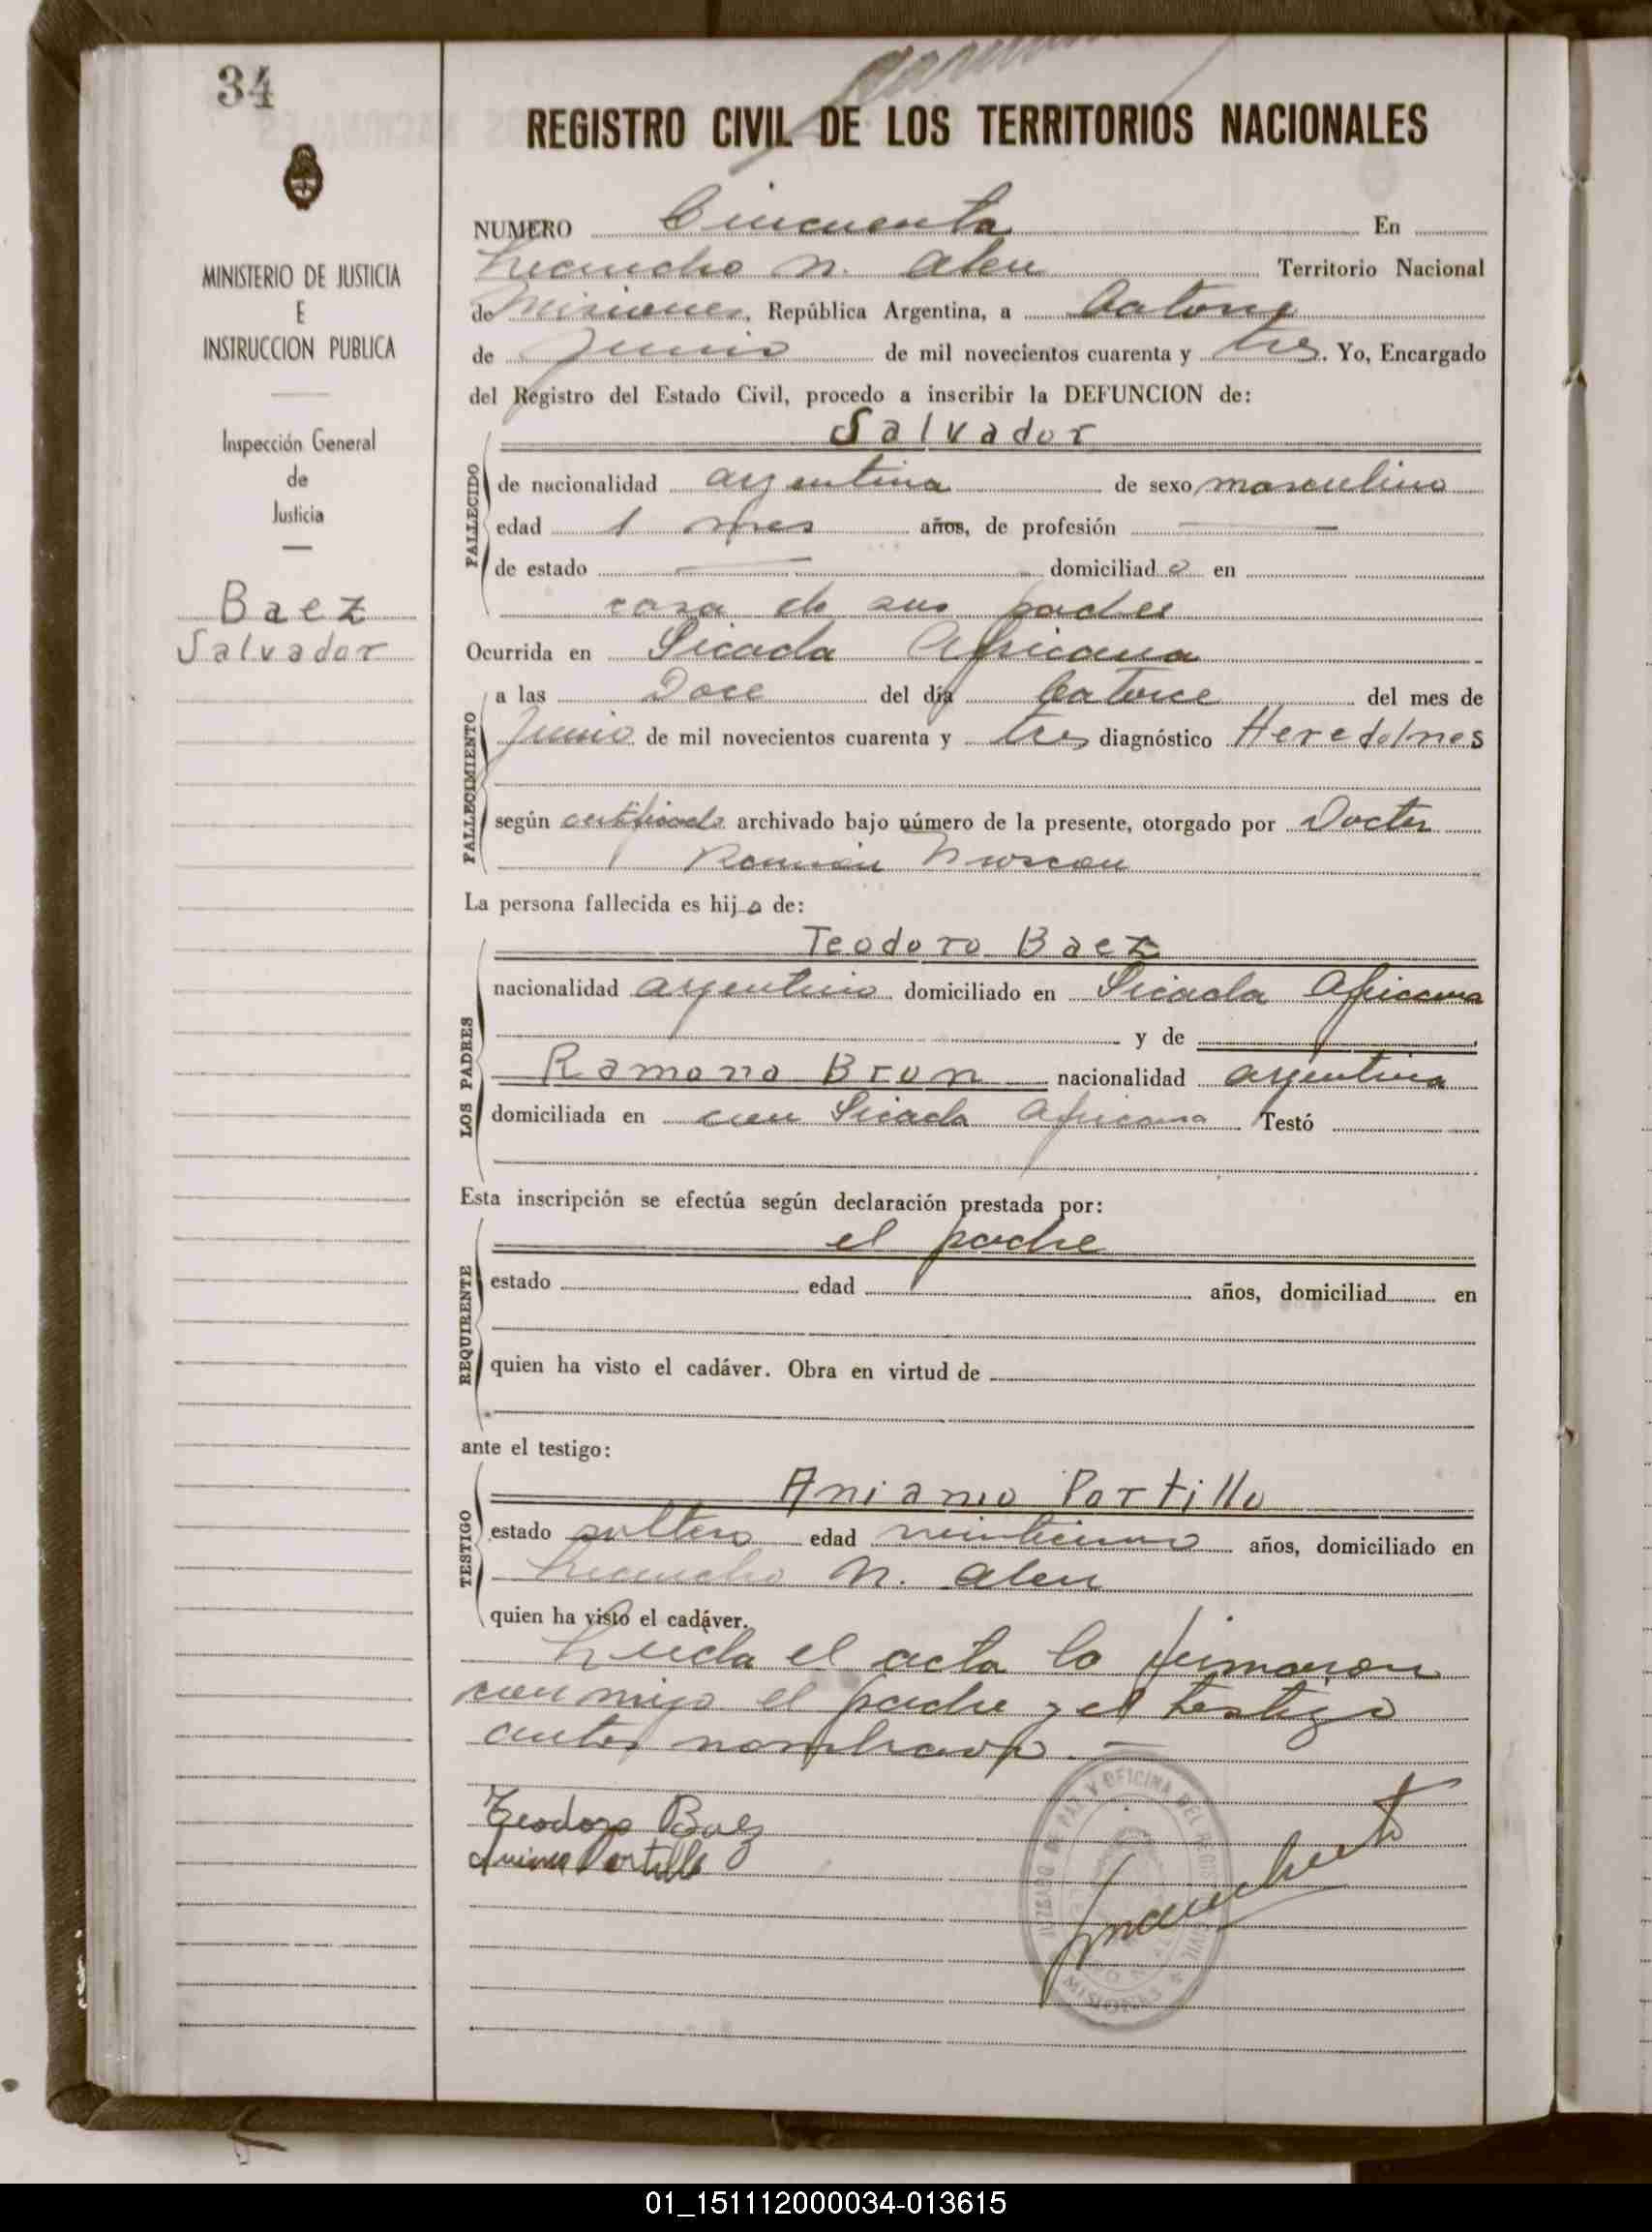 34
REGISTRO CIVIL DE LOS TERRITORIOS NACIONALES
MINISTERIO DE JUSTICIA
E
INSTRUCCION PUBLICA
Inspección General
de
Justicia
Baez
Salvador
NUMERO Cincuenta En
N. Alen Territorio Nacional
de Misiones, República Argentina, a Catorce
de Junio de mil novecientos cuarenta y tres. Yo, Encargado
del Registro del Estado Civil, procedo a inscribir la DEFUNCION de:
FALLECIDO
Salvador
de nacionalidad argentina de sexo masculino
edad 1 mes años, de profesión
de estado domiciliado en
casa de sus padres
Ocurrida en Picada Africana
FALLECIMIENTO
a las Doce del día Catorce del mes de
Junio de mil novecientos cuarenta y tres diagnóstico
según certificado archivado bajo número de la presente, otorgado por Doctor
Ramón
La persona fallecida es hijo de:
LOS PADRES
Teodoro Baez
nacionalidad argentino domiciliado en Picada Africana
y de
Ramona Bron nacionalidad argentina
domiciliada en Picada Africana Testó
Esta inscripción se efectúa según declaración prestada por:
REQUIRENTE
el padre
estado edad años, domiciliad en
quien ha visto el cadáver. Obra en virtud de
ante el testigo:
TESTIGO
Aniano Portillo
estado soltero edad años, domiciliado en
N. Alen
quien ha visto el cadáver.
Leida el acta la firmaron
conmigo el padre y el testigo
antes nombrado.
Teodoro Baez
Portillo
JUZGADO DE PAZ Y OFICINA DEL REGISTRO CIVIL
MISIONES
01_151112000034-013615